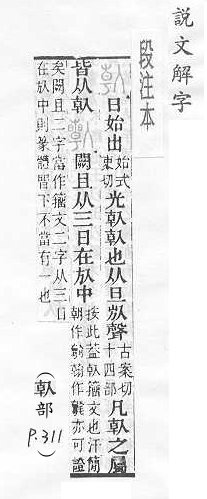 說文解字
段注本
倝
日始出
始式
束切
光倝倝也从旦㫃聲
古案切
十四部
凡倝之屬
皆从倝
闕且从三日在㫃中
按此葢倝籒文也汗簡
朝作 翰作 亦可證
矣闕且二字當作籒文二字从三日
在㫃中則篆體 下不當有一也
(倝部)
P.311